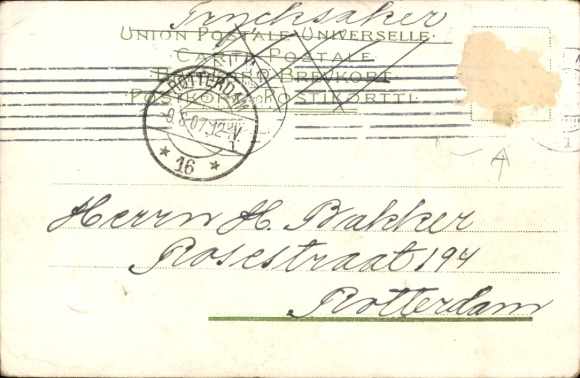 Trycksaker
UNION POSTALE UNIVERSELLE.
CARTE POSTALE
BREFKORT. BREVKORT.
POSTIKORTTI.
ROTTERDAM
9.8.07.12
* 16 *
Herrn H. Bakker
Rosestraat 194
Rotterdam